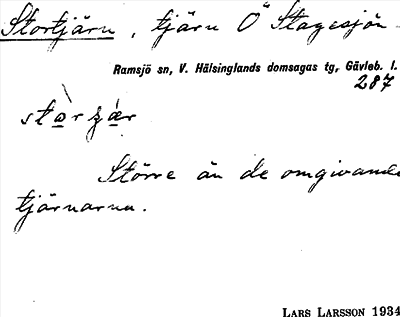 Stortjärn, tjärn Ö Stagesjön
Ramsjö sn, V. Hälsinglands domsagas tg, Gävleb. l.
287
Större än de omgivande
tjärnarna.
LARS LARSSON 1934